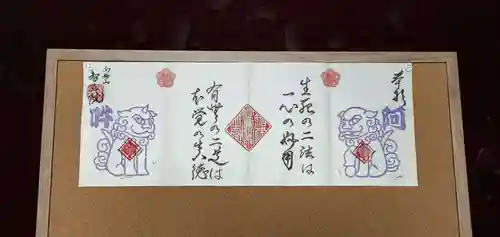 奉拝
阿
生死の二法は
一心の妙用
有無の二道は
本覚の真徳
吽